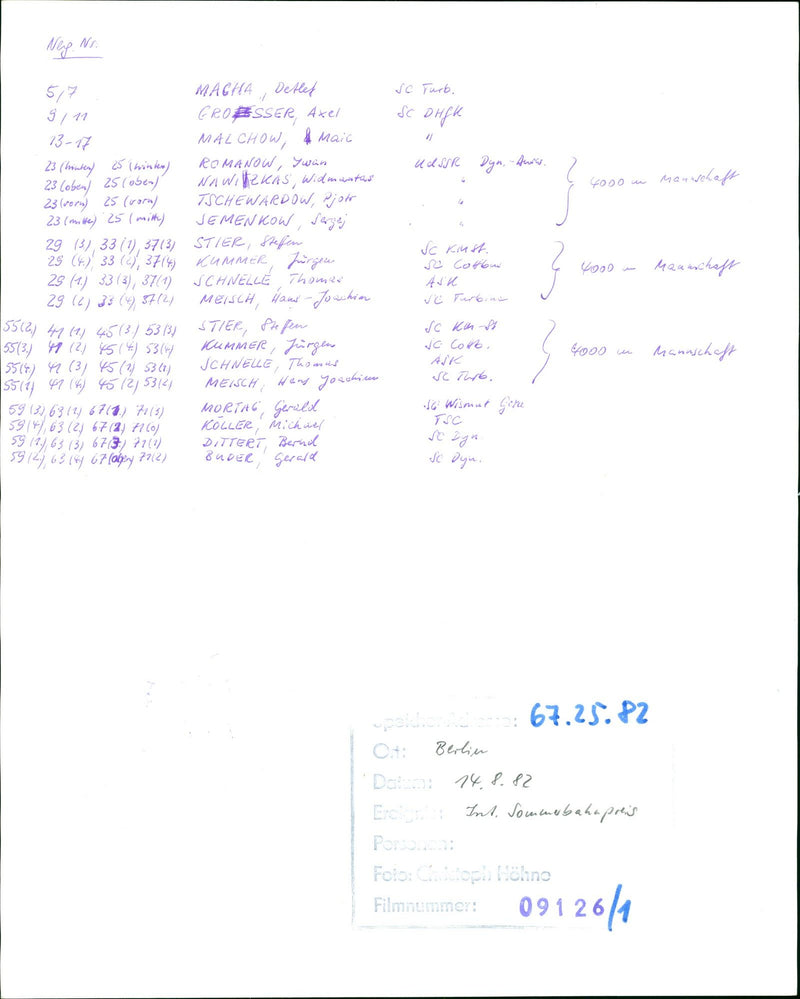 Neg. Nr.
5/7 MACHA, Detlef SC Turb.
9/11 GROESSER, Axel SC DHfK
13-17 MALCHOW, Maic "
23 (hinten) 25 (hinten) ROMANOW, Iwan UdSSR Dyn.-
23 (oben) 25 (oben) NAWITZKAS, Widmantas " } 4000 m Mannschaft
23 (vorn) 25 (vorn) TSCHEWARDOW, Pjotr "
23 (mitte) 25 (mitte) SEMENKOW, Sergej "
29 (3), 33 (1), 37 (3) STIER, Steffen SC KMSt.
29 (4), 33 (2), 37 (4) KUMMER, Jürgen SC Cottbus } 4000 m Mannschaft
29 (1) 33 (3), 37 (1) SCHNELLE, Thomas ASK
29 (2) 33 (4), 37 (2) MEISCH, Hans-Joachim SC Turbine
55 (2) 41 (1) 45 (3) 53 (3) STIER, Steffen SC KM-St
55 (3) 41 (2) 45 (4) 53 (4) KUMMER, Jürgen SC Cottb. } 4000 m Mannschaft
55 (4) 41 (3) 45 (1) 53 (1) SCHNELLE, Thomas ASK
55 (1) 41 (4) 45 (2) 53 (2) MEISCH, Hans Joachim SC Turb.
59 (3), 63 (1) 67 (1) 71 (3) MORTAG, Gerald SG Wismut Gera
59 (4), 63 (2) 67 (2) 71 (0) KÖLLER, Michael TSC
59 (1), 63 (3) 67 (3) 71 (1) DITTERT, Bernd SC Dyn
59 (2), 63 (4) 67 (oben) 71 (2) BUDER, Gerald SC Dyn.
Speicher-Adresse: 67.25.82
Ort: Berlin
Datum: 14.8.82
Ereignis: Int. Sommerbahnpreis
Personen:
Foto: Christoph Höhne
Filmnummer: 09126/1